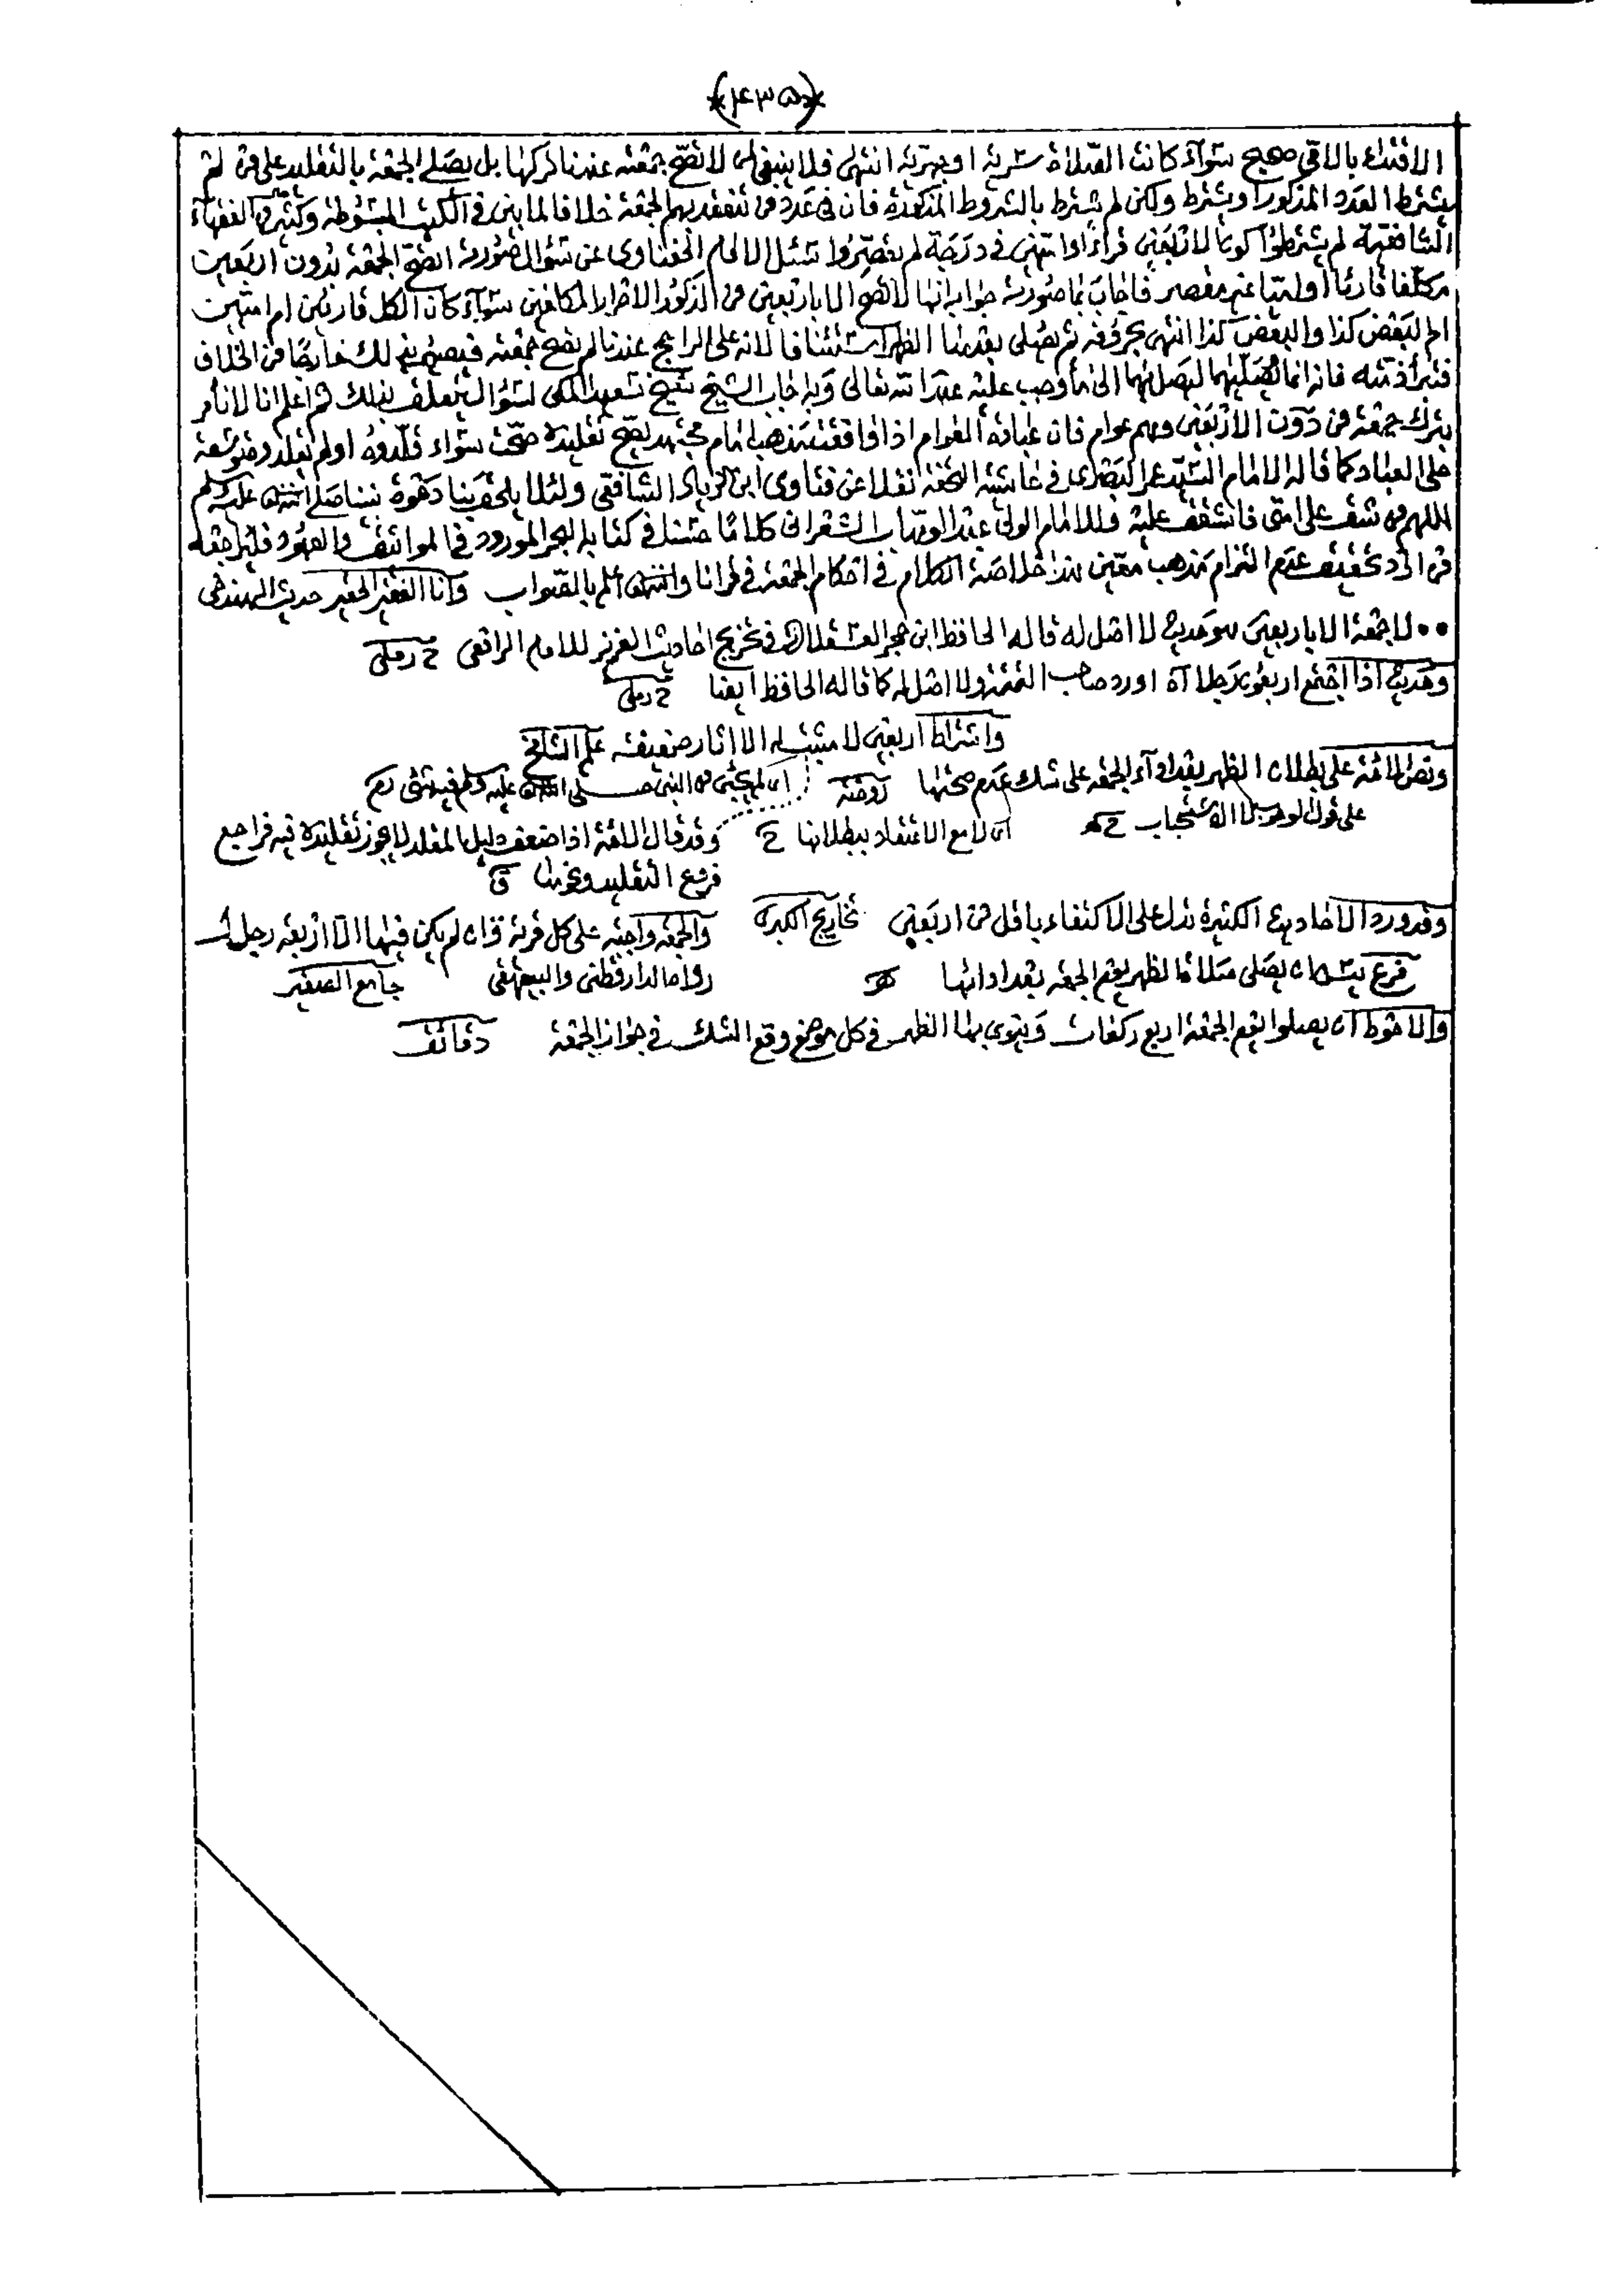 (٤٣٥)
الاقتداء بالاقي صحيح سوآء كانت الصلاة سرية او جهرية انتهى فلا ينبغي لمن لا تصح جمعته عندنا تركها بل يصلي الجمعة بالتقليد على من لم
يشترط العدد المذكور او يشترط ولكن لم يشترط بالشروط المذكورة فان في عدد من تنعقد بهم الجمعة خلافا لما بين في الكتب المبسوطة وكثير من الفقهاء
الشافعية لم يشترطوا كون الاربعين قراءً او اميين في درجة لم يقصروا سئل الامام الحفناوى عن سؤال صورته اتصح الجمعة بدون اربعين
مكلفا قارئا او اميا غير مقصر فاجاب بما صورته جوابه انها لا تصح الا باربعين من الذكور الاحرار المكلفين سوآء كان الكل قارئين ام اميين
ام البعض كذا والبعض كذا انتهى بحروفه ثم يصلى بعدها الظهر استئنافا لانه على الراجح عندنا لم تصح جمعته فيصير بذلك خارجا من الخلاف
فتبرأ ذمته فانه انما يصليهما ليصل بهما الى ما وجب عليه عند الله تعالى وبه اجاب الشيخ شيخ سعيد المكي لسؤال يتعلق بذلك ثم اعلم انا لا نأمر
بترك جمعة من دون الاربعين وهم عوام فان عبادة العوام اذا وافقت مذهب امام مجتهد يصح تقليده صحت سواء قلدوه او لم يقلدوه توسعة
على العباد كما قاله الامام السيد عمر البصرى في حاشية التحفة نقلا عن فتاوى ابن الزياد الشافعي ولئلا يلحق بنا دعوة نبينا صلى الله عليه وسلم
اللهم من شق على امتي فاشقق عليه وللامام الولي عبد الوهاب الشعراني كلاما حسنا في كتابه البحر المورود في المواثيق والعهود فليراجعه
من اراد تحقيق عدم التزام مذهب معين هذا خلاصة الكلام في احكام الجمعة في قرانا والله اعلم بالصواب وانا الفقير الحقير
•• لا جمعة الا باربعين هو حديث لا اصل له قاله الحافظ ابن حجر العسقلاني في تخريج احاديث العزيز للامام الرافعي ح رملي
وحديث اذا اجتمع اربعون رجلا آه اورده صاحب التتمة ولا اصل له كما قاله الحافظ ايضا ح رملي
واشتراط اربعين لا مثبت له الا اثار ضعيفة علم الشامخ
ونص الائمة على بطلان الظهر بعد اداء الجمعه على شك عدم صحتها روضة اى لم يجئ من النبي صلى الله عليه وسلم فيه شئ
على قول لوجوب لا الاستحباب ح اى لا مع الاعتقاد ببطلانها ح وقد قال الائمة اذا ضعف دليل المقلد لا يجوز تقليده فيه فراجع
فرع التقليد وغيرها ق
وقد ورد الاحاديث الكثيرة تدل على الاكتفاء باقل من اربعين تخاريج الكبرى والجمعة واجبة على كل قرية وان لم يكن فيها الا اربعة رجل
فرع يسن ان يصلى صلاة الظهر يوم الجمعه بعد ادائها رواه الدارقطني والبيهقي جامع الصغير
والاحوط ان يصلوا يوم الجمعة اربع ركعات وينوي بها الظهر في كل موضع وقع الشك في جواز الجمعة دقائق